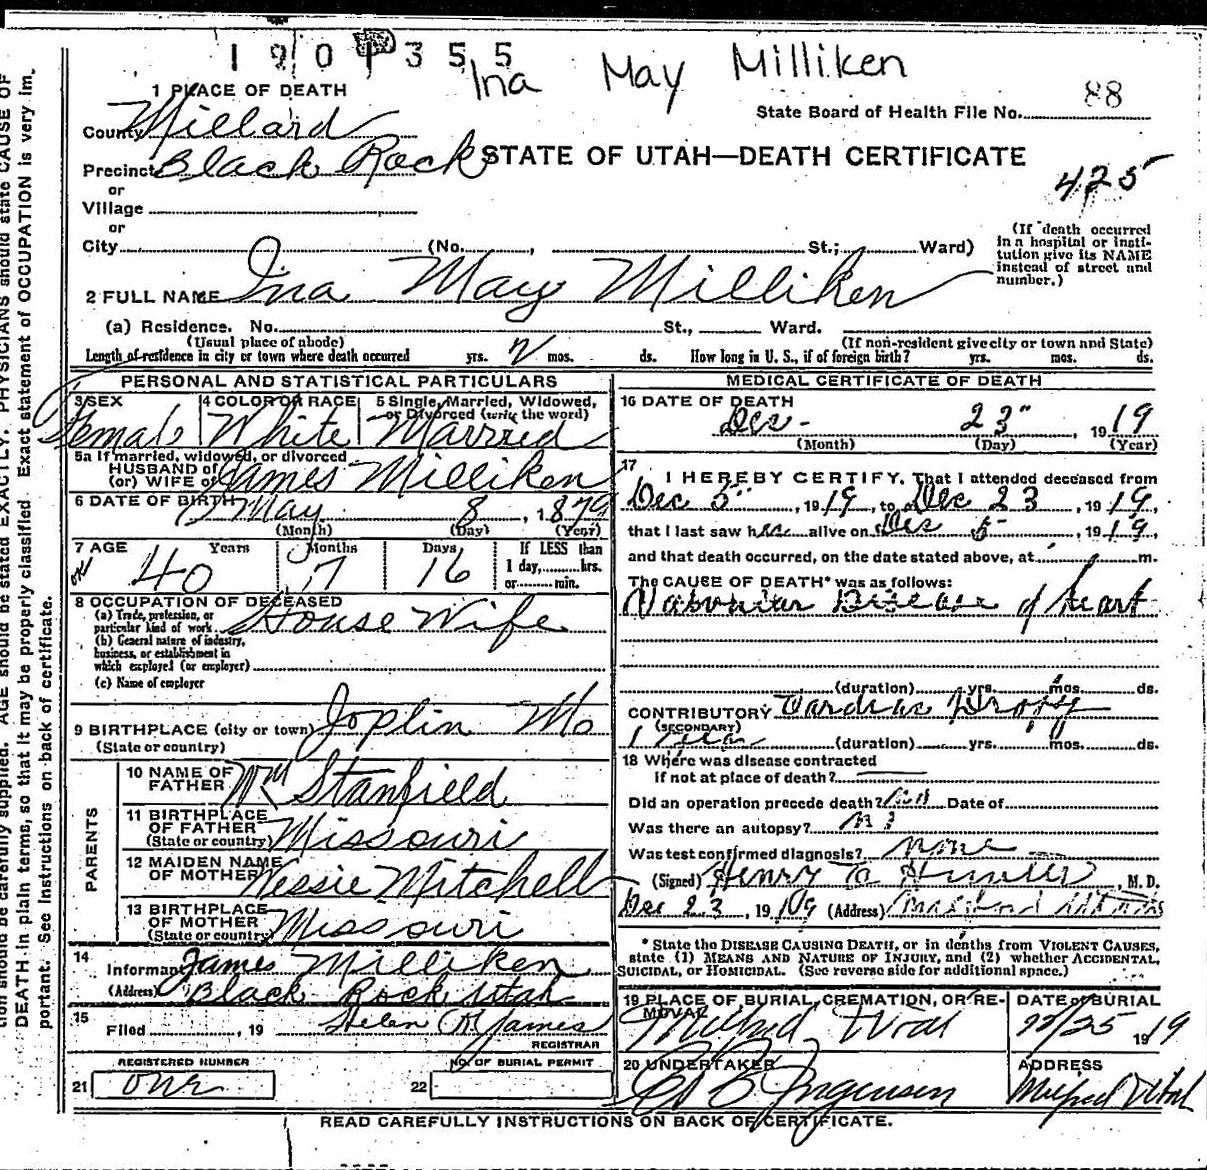 1901355
Ina May Milliken
1 PLACE OF DEATH
State Board of Health File No. 88
County Millard
Precinct Black Rock
STATE OF UTAH—DEATH CERTIFICATE
425
or
Village
or
City (No. , St.; Ward)
(If death occurred
in a hospital or insti-
tution give its NAME
instead of street and
number.)
2 FULL NAME Ina May Milliken
(a) Residence. No. St., Ward.
(Usual place of abode) (If non-resident give city or town and State)
Length of residence in city or town where death occurred yrs. mos. ds. How long in U. S., if of foreign birth? yrs. mos. ds.
PERSONAL AND STATISTICAL PARTICULARS
3 SEX 4 COLOR OR RACE 5 Single, Married, Widowed,
or Divorced (write the word)
Female White Married
5a If married, widowed, or divorced
HUSBAND of
(or) WIFE of James Milliken
6 DATE OF BIRTH May 8, 1879
(Month) (Day) (Year)
7 AGE Years Months Days If LESS than
40 7 16 1 day, hrs.
or min.
8 OCCUPATION OF DECEASED
(a) Trade, profession, or
particular kind of work House Wife
(b) General nature of industry,
business, or establishment in
which employed (or employer)
(c) Name of employer
9 BIRTHPLACE (city or town) Joplin Mo
(State or country)
PARENTS
10 NAME OF
FATHER Wm Stanfield
11 BIRTHPLACE
OF FATHER
(State or country) Missouri
12 MAIDEN NAME
OF MOTHER Nessie Mitchell
13 BIRTHPLACE
OF MOTHER
(State or country) Missouri
14
Informant James Milliken
(Address) Black Rock Utah
15
Filed , 19 Helen M James
REGISTRAR
REGISTERED NUMBER NO. OF BURIAL PERMIT
21 one 22
MEDICAL CERTIFICATE OF DEATH
16 DATE OF DEATH
Dec. 23", 1919
(Month) (Day) (Year)
17
I HEREBY CERTIFY, That I attended deceased from
Dec 5", 1919, to Dec 23, 1919,
that I last saw her alive on Dec 5, 1919,
and that death occurred, on the date stated above, at m.
The CAUSE OF DEATH* was as follows:
Disease of heart
(duration) yrs. mos. ds.
CONTRIBUTORY Cardiac Dropsy
(SECONDARY)
1 Year (duration) yrs. mos. ds.
18 Where was disease contracted
if not at place of death?
Did an operation precede death? Date of
Was there an autopsy? no
Was test confirmed diagnosis? none
(Signed) Henry Hunter, M. D.
Dec 23, 1919 (Address)
* State the DISEASE CAUSING DEATH, or in deaths from VIOLENT CAUSES,
state (1) MEANS AND NATURE OF INJURY, and (2) whether ACCIDENTAL,
SUICIDAL, or HOMICIDAL. (See reverse side for additional space.)
19 PLACE OF BURIAL, CREMATION, OR RE-
MOVAL
DATE of BURIAL
Milford Utah 12/25 1919
20 UNDERTAKER ADDRESS
Jorgensen Milford Utah
READ CAREFULLY INSTRUCTIONS ON BACK OF CERTIFICATE.
tion should be carefully supplied. AGE should be stated EXACTLY. PHYSICIANS should state CAUSE OF
DEATH in plain terms, so that it may be properly classified. Exact statement of OCCUPATION is very im-
portant. See instructions on back of certificate.